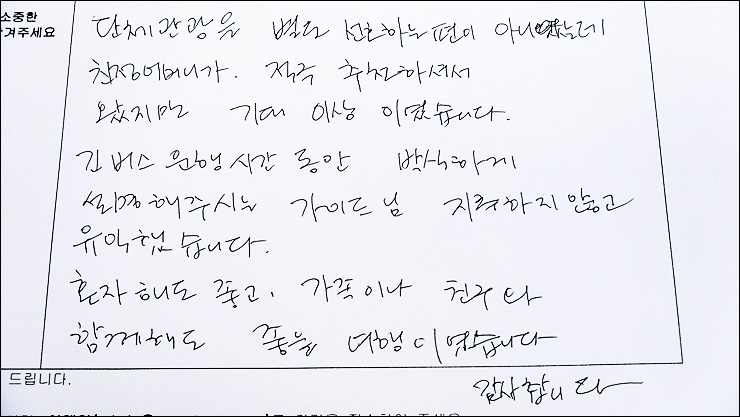 소중한
겨주세요
단체관광을 별로 선호하는 편이 아니였는데
친정어머니가. 적극 추천하셔서
왔지만 기대 이상 이였습니다.
긴 버스 운행시간 동안 박식하게
설명해주시는 가이드님 지력하지 않고
유익했습니다.
혼자해도 좋고, 가족이나 친구와
함께해도 좋을 여행이였습니다
드립니다.
감사합니다